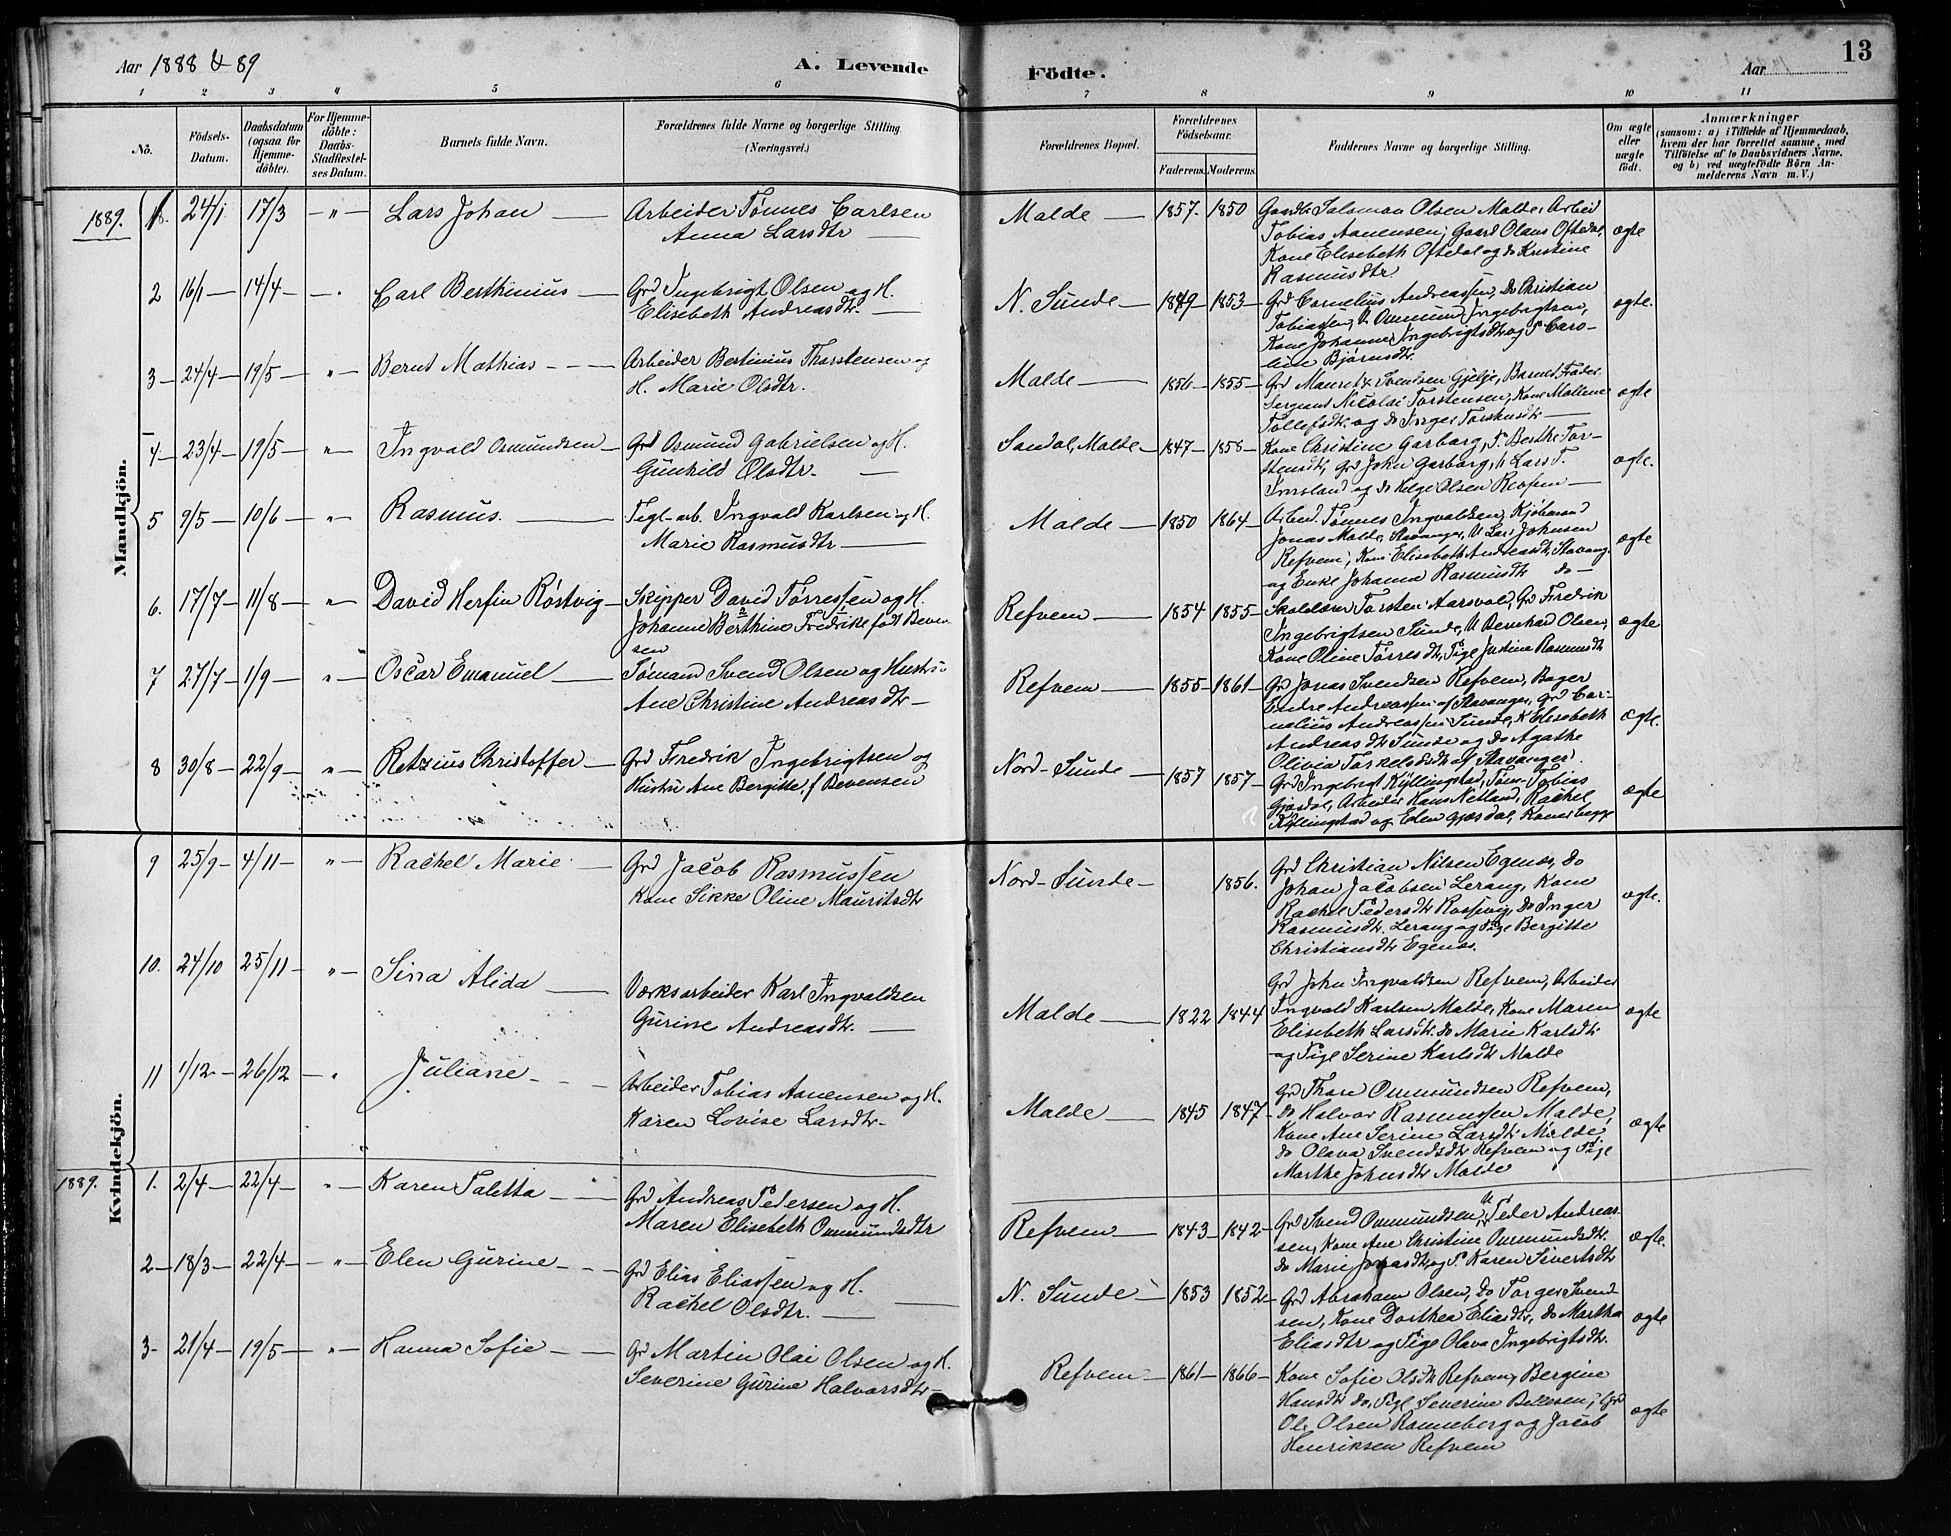 Aar 1888 & 89
A. Levende Födte.
Aar
13
1 2 3 4 5 6 7 8 9 10 11
No.
Födsels-Datum.
Daabsdatum (ogsaa for Hjemme-döbte).
For Hjemme-döbte: Daabs-Stadfæstel-ses Datum.
Barnets fulde Navn.
Forældrenes fulde Navne og borgerlige Stilling (Næringsvei.)
Forældrenes Bopæl.
Forældrenes Födselsaar.
Faderens. Moderens.
Faddernes Navne og borgerlige Stilling.
Om ægte eller uægte födt.
Anmærkninger
(saasom: a) i Tilfælde af Hjemmedaab, hvem der har forrettet samme, med Tilföielse af to Daabsvidners Navne, og b) ved uægtefödte Börn An-melderens Navn m. V.)
Mandkjön.
1889. 24/1 17/3 — " — Lars Johan — Arbeider Tönnes Carlsen
Anna Larsdtr — Malde — 1857. 1850 Gaardbr Salomon Olsen Malde, Arbeid
Tobias Aanensen, Gaard Olaus Oftedal, ægte
Kone Elisabeth Oftedal og do Kristine
Rasmusdtr
2 16/1 — 14/4 — Carl Berthinius — Grd Ingebrigt Olsen og H.
Elisabeth Andreasdtr. — N. Sunde — 1849 — 1853 — Grd Cornelius Andreassen, Do Christian
Tobiassen, U Ommund Ingebrigtsen, ægte.
Kone Johanne Ingebrigtsdtr og P Caro-
line Bjørnsdtr.
3 — 24/4 — 19/5 — " — Bernt Mathias — Arbeider Bertinius Thorstensen og
H. Marie Olsdtr. Malde — 1856 — 1855 — Grd Mauritz Svendsen Gjelje, Barnets Fader
Sergeant Nicolai Torstensen, Kone Mallene ægte
Tollefsdtr. og do Inger Torstensdtr —
4 — 23/4 — 19/5 — " — Ingvald Osmundsen — Grd Osmund Gabrielsen og H.
Gunhild Olsdtr. — Sandal, Malde — 1847 — 1858 — Kone Christine Garborg, P. Berthe Tor-
stensdtr, Grd John Garborg, U Lars T. ægte.
og do Helge Olsen —
5 9/5 — 10/6 — " — Rasmus. — Tegl-arb. Ingvald Karlsen og H.
Marie Rasmusdtr — Malde — 1850 1864 — Arbeid. Tønnes Ingvaldsen, Kjöbmand
Jonas Malde, Stavanger, U Lars Johnsen ægte
Refvem, Kone Elisabeth Andreasdtr, Stavang.
og Enke Johanna Rasmusdtr do —
6. 17/7 — 11/8 — " — David Herfin Röstvig — Skipper David Tørressen og H.
Johanne Berthine Fredrike født Beven-
sen Refvem — 1854 1855 — Skolelærer Torsten Aarsvold, Grd Fredrik
Ingebrigtsen Sunde, U Bernhard Olsen, ægte
Kone Oline Tørresdtr, Pige Justine Rasmusdtr
7 27/7 — 1/9 — " — Oscar Emanuel — Sømand Svend Olsen og Hustru
Ane Christine Andreasdtr — Refvem — 1855 — 1861 — Gr Jonas Svendsen Refvem, Bager
Endre Andreassen af Stavanger, Grd Cor-
nelius Andreassen Sunde, K Elisabeth ægte.
Andreasdtr Sunde og do Agathe
Olivia Torkelsdtr af Stavanger.
8 30/8 — 22/9 — " — Retzius Christoffer — Grd Fredrik Ingebrigtsen og
Hustru Ane Bergitte, f Bevensen Nord-Sunde — 1857 1857 Grd Ingebrigt Kyllingstad, Tøm. Tobias
Gjæsdal, Arbeider Hans Netland, Rachel ægte
Kyllingstad og Elen Gjæsdal, Koner begge
Kvindekjön.
9 25/9 — 4/11 — " — Rachel Marie — Grd Jacob Rasmussen
Kone Sikke Oline Mauritsdtr Nord-Sunde — 1856. Grd Christian Nilsen Egenæs, do
Johan Jacobsen Lerang, Kone ægte.
Rachel Pedersdtr Rossevig, do Inger
Rasmusdtr. Lerang og Pige Bergitte
Christiansdtr Egenæs.
10. 24/10 25/11 — " — Sina Alida — Værksarbeider Karl Ingvaldsen
Gurine Andreasdtr. — Malde — 1822 1844 Grd John Ingvaldsen Refvem, Arbeider
Ingvald Karlsen Malde, Kone Maren ægte
Elisabeth Larsdtr. do Marie Karlsdtr
og Pige Serine Karlsdtr Malde
11 1/12 — 26/12 — " Juliane — Arbeider Tobias Aanensen og H.
Karen Lovise Larsdtr — Malde — 1845 1847 — Gr Thore Ommundsen Refvem,
do Halvor Rasmussen Malde, ægte
Kone Ane Serine Larsdtr Malde,
do Olava Svendsdtr Refvem og Pige
Marthe Johnsdtr Malde
1889. 1. 2/4 — 22/4 — " — Karen Taletta — Grd Andreas Pedersen og H.
Maren Elisabeth Ommundsdtr Refvem — 1843 — 1842 — Grd Svend Ommundsen, U Peder Andreas-
sen, Kone Ane Christine Ommundsdtr. ægte.
do Marie Jonasdtr og P. Karen Sivertsdtr
2 — 18/3 — 22/4 — " — Elen Gurine — Grd Elias Eliassen og H.
Rachel Olsdtr. — N. Sunde — 1853 1852 — Grd Abraham Olsen, Do Torger Svend-
sen, Kone Dorthea Eliasdtr, do Martha ægte
Eliasdtr og Pige Olava Ingebrigtsdtr.
3 — 21/4 — 19/5 — " — Hanna Sofie — Gr Martin Olai Olsen og H.
Severine Gurine Halvorsdtr — Refvem — 1861 — 1866 — Kone Sofie Olsdtr Refvem, Bergine
Hansdtr do, Pige Severine Bertesen, Grd ægte
Ole Olsen Ranneberg og Jacob
Henriksen Refvem